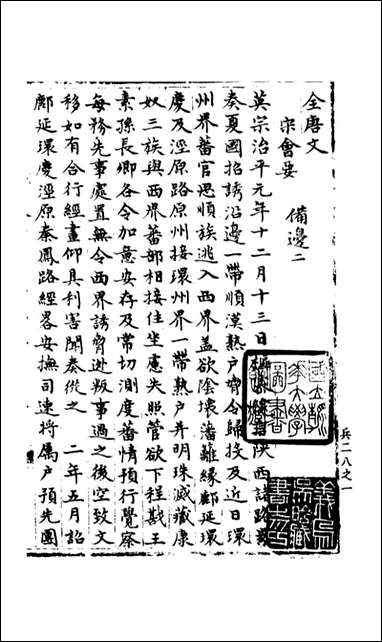 全唐文
宋會要
備邊二
英宗治平元年十二月十三日
陝西諸路
奏夏國招誘沿邊一帶順漢熟户脅令歸投及近日環
州界蕃官思順族逃入西界蓋欲隂壞藩籬緣鄜延環
慶及涇原路原州接環州界一帶熟户并明珠滅藏康
奴三族與西界蕃部相接住坐慮失照管欲下程戡王
素孫長卿各令加意安存及常切測度蕃情預行覺察
每務先事處置無令西界誘脅逃叛事過之後空致文
移如有合行經畫仰具利害聞奏從之
二年五月詔
鄜延環慶涇原秦鳳路經畧安撫司速將属户預先團
兵二八之一